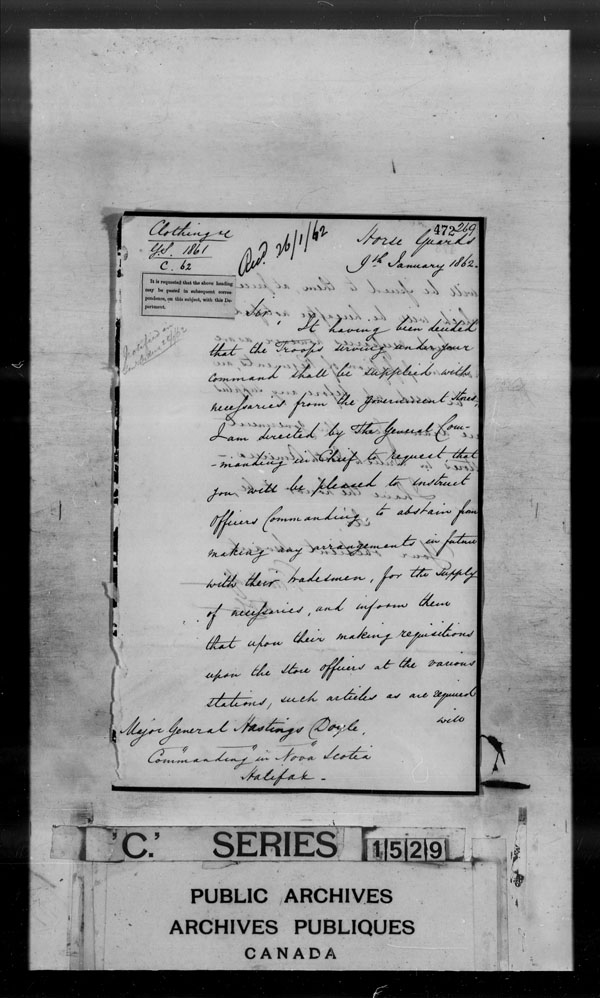 472 269
Clothing &c
Y.S. 1861
C. 62
Recd. 26/1/62
Horse Guards
9th January 1862.
It is requested that the above heading
may be quoted in subsequent corres-
pondence, on this subject, with this De-
partment.
Sir,
It having been decided
that the Troops serving under your
command shall be supplied with
necessaries from the Government Stores,
I am directed by The General Com-
-manding in Chief to request that
you will be pleased to instruct
Officers Commanding to abstain from
making any arrangements in future
with their tradesmen, for the supply
of necessaries, and inform them
that upon their making requisitions
upon the store officers at the various
stations, such articles as are required
will
Major General Hastings Doyle,
Com"manding" in Nova Scotia
Halifax -
'C.' SERIES 1529
PUBLIC ARCHIVES
ARCHIVES PUBLIQUES
CANADA
F